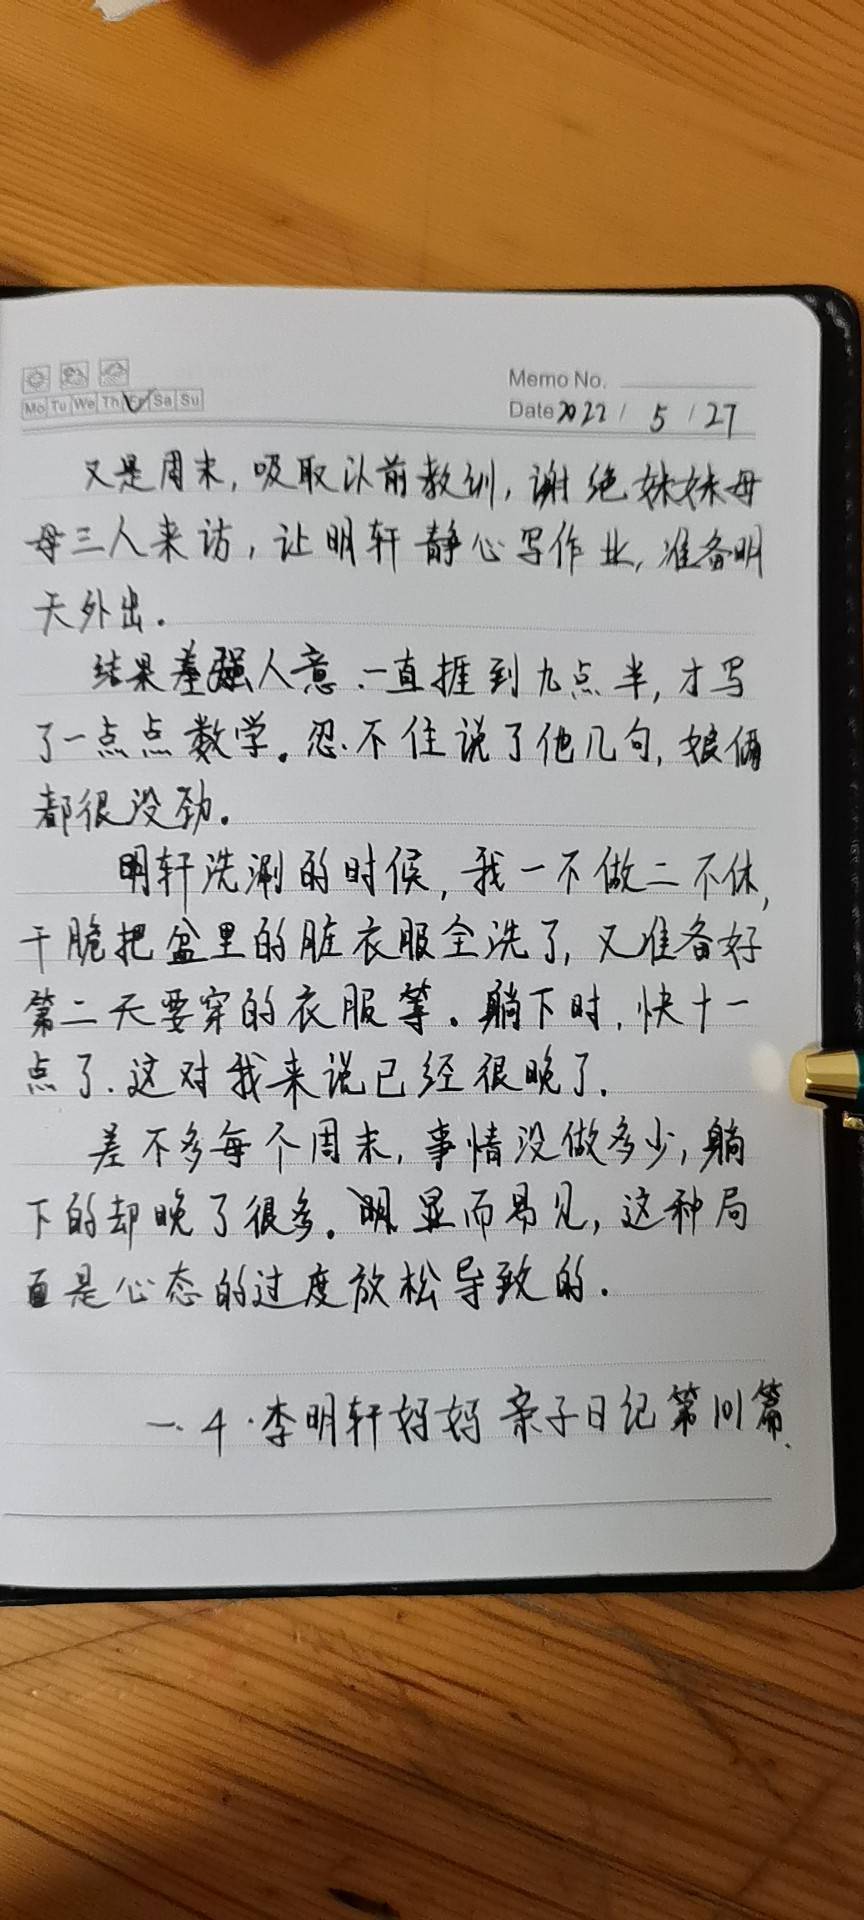 Memo No.
Mo Tu We Th Fr Sa Su
Date 2022 / 5 / 27
又是周末,吸取以前教训,谢绝妹妹母
母三人来访,让明轩静心写作业,准备明
天外出.
结果差强人意.一直捱到九点半,才写
了一点点数学。忍不住说了他几句,娘俩
都很没劲。
明轩洗涮的时候,我一不做二不休,
干脆把盆里的脏衣服全洗了,又准备好
第二天要穿的衣服等.躺下时,快十一
点了.这对我来说已经很晚了.
差不多每个周末,事情没做多少,躺
下的却晚了很多。明显而易见,这种局
面是心态的过度放松导致的.
一.4.李明轩妈妈 亲子日记第101篇.